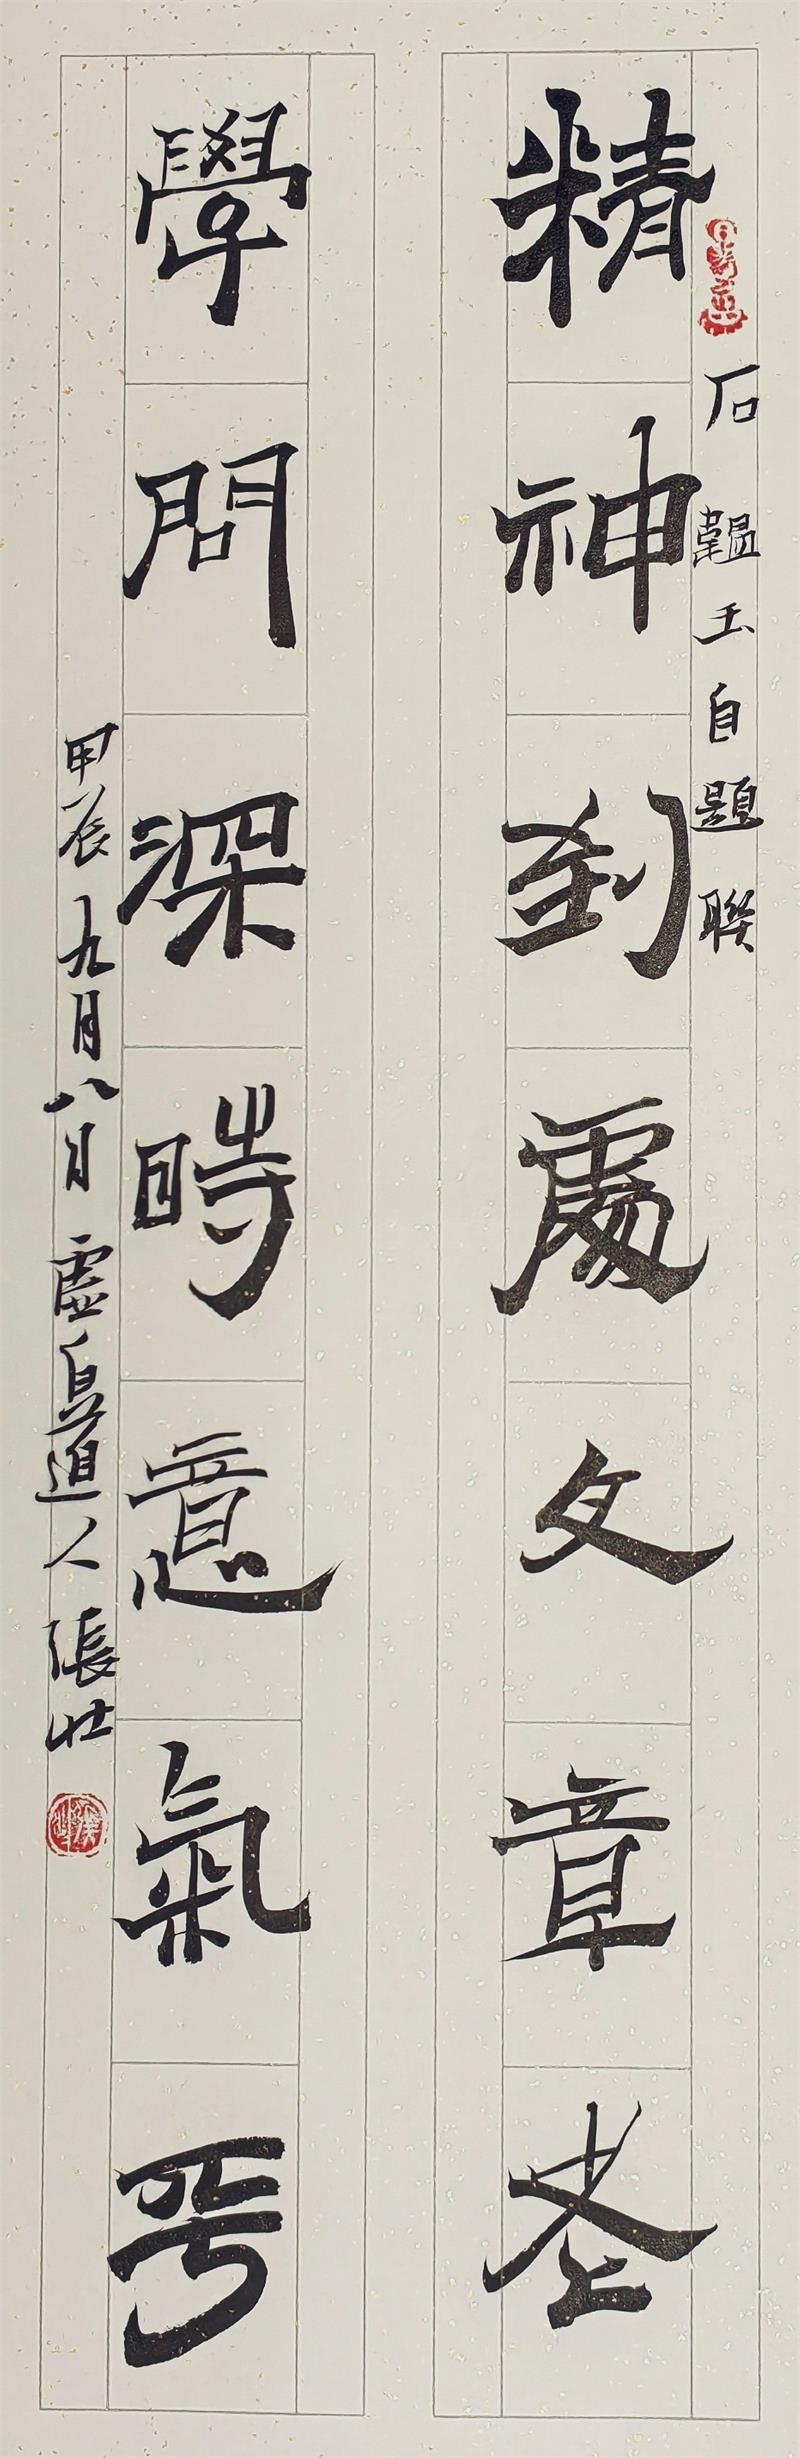 石韞玉自題聯
精神到處文章老
學問深時意氣平
甲辰九月八日虛道人張壯